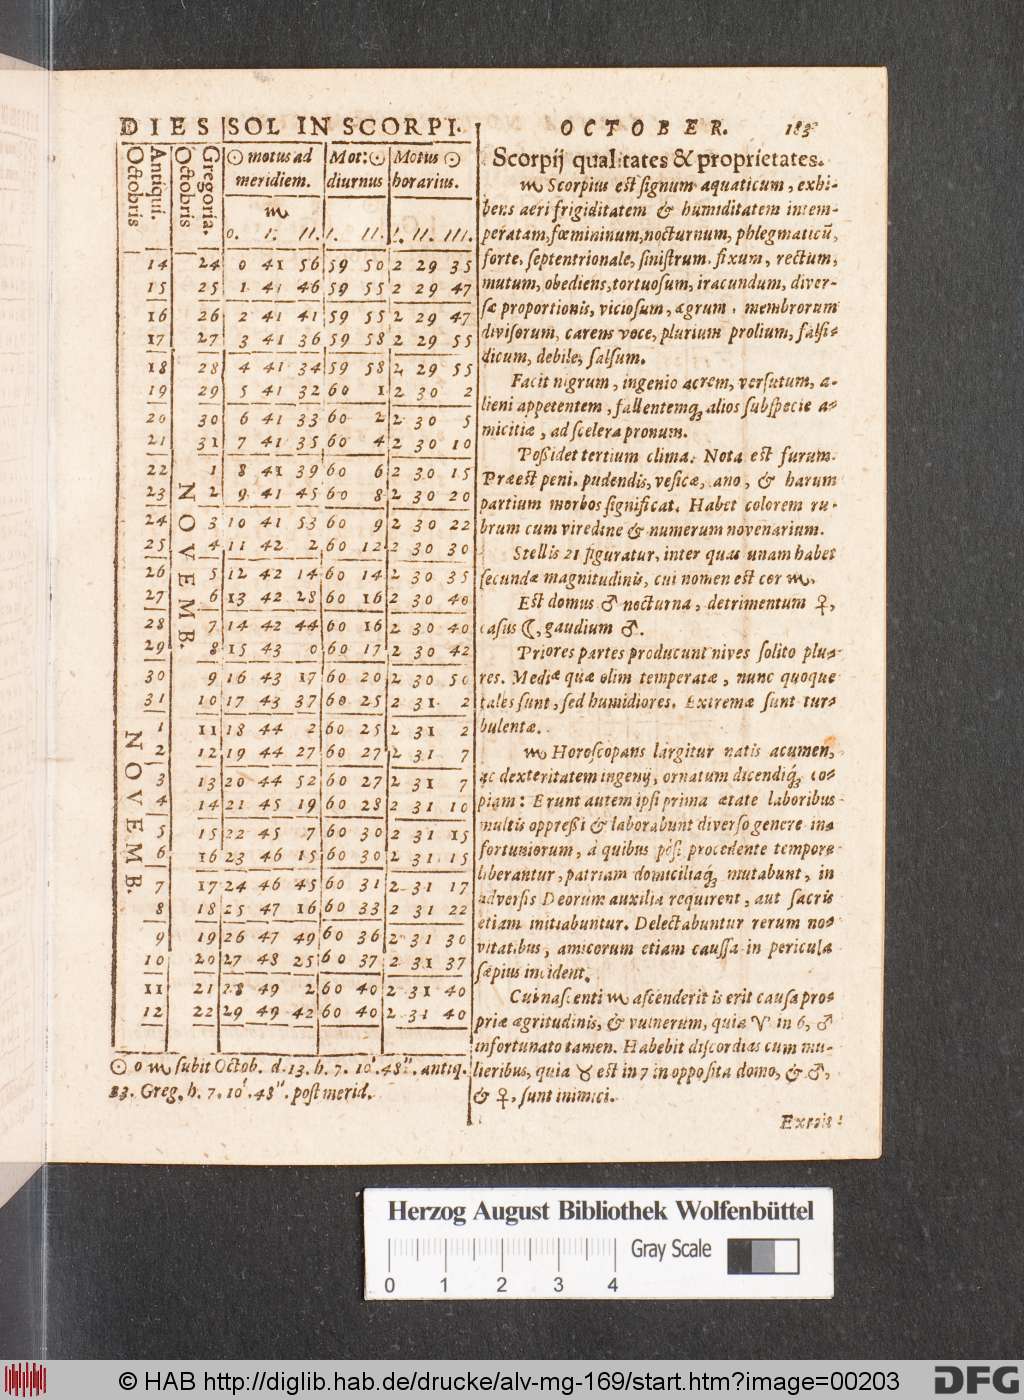 DIES SOL IN SCORPI.
OCTOBER. 183
Antiqui. Octobris
Gregoria. Octobris
☉ motus ad meridiem.
Mot: ☉ diurnus
Motus ☉ horarius.
♏
0. I. II. I. II. I. II. III.
14 24 0 41 56 59 50 2 29 35
15 25 1 41 46 59 55 2 29 47
16 26 2 41 41 59 55 2 29 47
17 27 3 41 36 59 58 2 29 55
18 28 4 41 34 59 58 2 29 55
19 29 5 41 32 60 1 2 30 2
20 30 6 41 33 60 2 2 30 5
21 31 7 41 35 60 4 2 30 10
22 1 8 41 39 60 6 2 30 15
23 2 9 41 45 60 8 2 30 20
24 3 10 41 53 60 9 2 30 22
25 4 11 42 2 60 12 2 30 30
26 5 12 42 14 60 14 2 30 35
27 6 13 42 28 60 16 2 30 40
28 7 14 42 44 60 16 2 30 40
29 8 15 43 0 60 17 2 30 42
30 9 16 43 17 60 20 2 30 50
31 10 17 43 37 60 25 2 31 2
1 11 18 44 2 60 25 2 31 2
2 12 19 44 27 60 27 2 31 7
3 13 20 44 52 60 27 2 31 7
4 14 21 45 19 60 28 2 31 10
5 15 22 45 7 60 30 2 31 15
6 16 23 46 15 60 30 2 31 15
7 17 24 46 45 60 31 2 31 17
8 18 25 47 16 60 33 2 31 22
9 19 26 47 49 60 36 2 31 30
10 20 27 48 25 60 37 2 31 37
11 21 28 49 2 60 40 2 31 40
12 22 29 49 42 60 40 2 31 40
NOVEMB.
NOVEMB.
☉ 0 ♏ subit Octob. d. 13. h. 7. 10'. 48''. antiq.
23. Greg. h. 7. 10'. 48''. post merid.
Scorpij qualitates & proprietates.
♏ Scorpius est signum aquaticum, exhi-
bens aeri frigiditatem & humiditatem intem-
peratam, fœmininum, nocturnum, phlegmaticũ,
forte, septentrionale, sinistrum, fixum, rectum,
mutum, obediens, tortuosum, iracundum, diver-
sæ proportionis, viciosum, ægrum, membrorum
divisorum, carens voce, plurium prolium, falsi-
dicum, debile, salsum.
Facit nigrum, ingenio acrem, versutum, a-
lieni appetentem, fallentemq́; alios sub specie a-
micitiæ, ad scelera pronum.
Possidet tertium clima. Nota est furum.
Præest peni, pudendis, vesicæ, ano, & harum
partium morbos significat. Habet colorem ru-
brum cum viredine & numerum novenarium.
Stellis 21 figuratur, inter quas unam habet
secundæ magnitudinis, cui nomen est cor ♏.
Est domus ♂ nocturna, detrimentum ♀,
casus ☾, gaudium ♂.
Priores partes producunt nives solito plu-
res. Mediæ quæ olim temperatæ, nunc quoque
tales sunt, sed humidiores. Extremæ sunt tur-
bulentæ.
♏ Horoscopans largitur natis acumen,
ac dexteritatem ingenij, ornatum dicendiq́; co-
piam: Erunt autem ipsi prima ætate laboribus
multis oppressi & laborabunt diverso genere in-
fortuniorum, à quibus pòst procedente tempore
liberantur, patriam domiciliaq́; mutabunt, in
adversis Deorum auxilia requirent, aut sacris
etiam initiabuntur. Delectabuntur rerum no-
vitatibus, amicorum etiam caussa in pericula
sæpius incident.
Cui nascenti ♏ ascenderit is erit causa pro-
priæ ægritudinis, & vulnerum, quia ♈ in 6, ♂
infortunato tamen. Habebit discordias cum mu-
lieribus, quia ♉ est in 7 in opposita domo, & ♂,
& ♀, sunt inimici.
Herzog August Bibliothek Wolfenbüttel
Gray Scale
0 1 2 3 4
© HAB http://diglib.hab.de/drucke/alv-mg-169/start.htm?image=00203
DFG